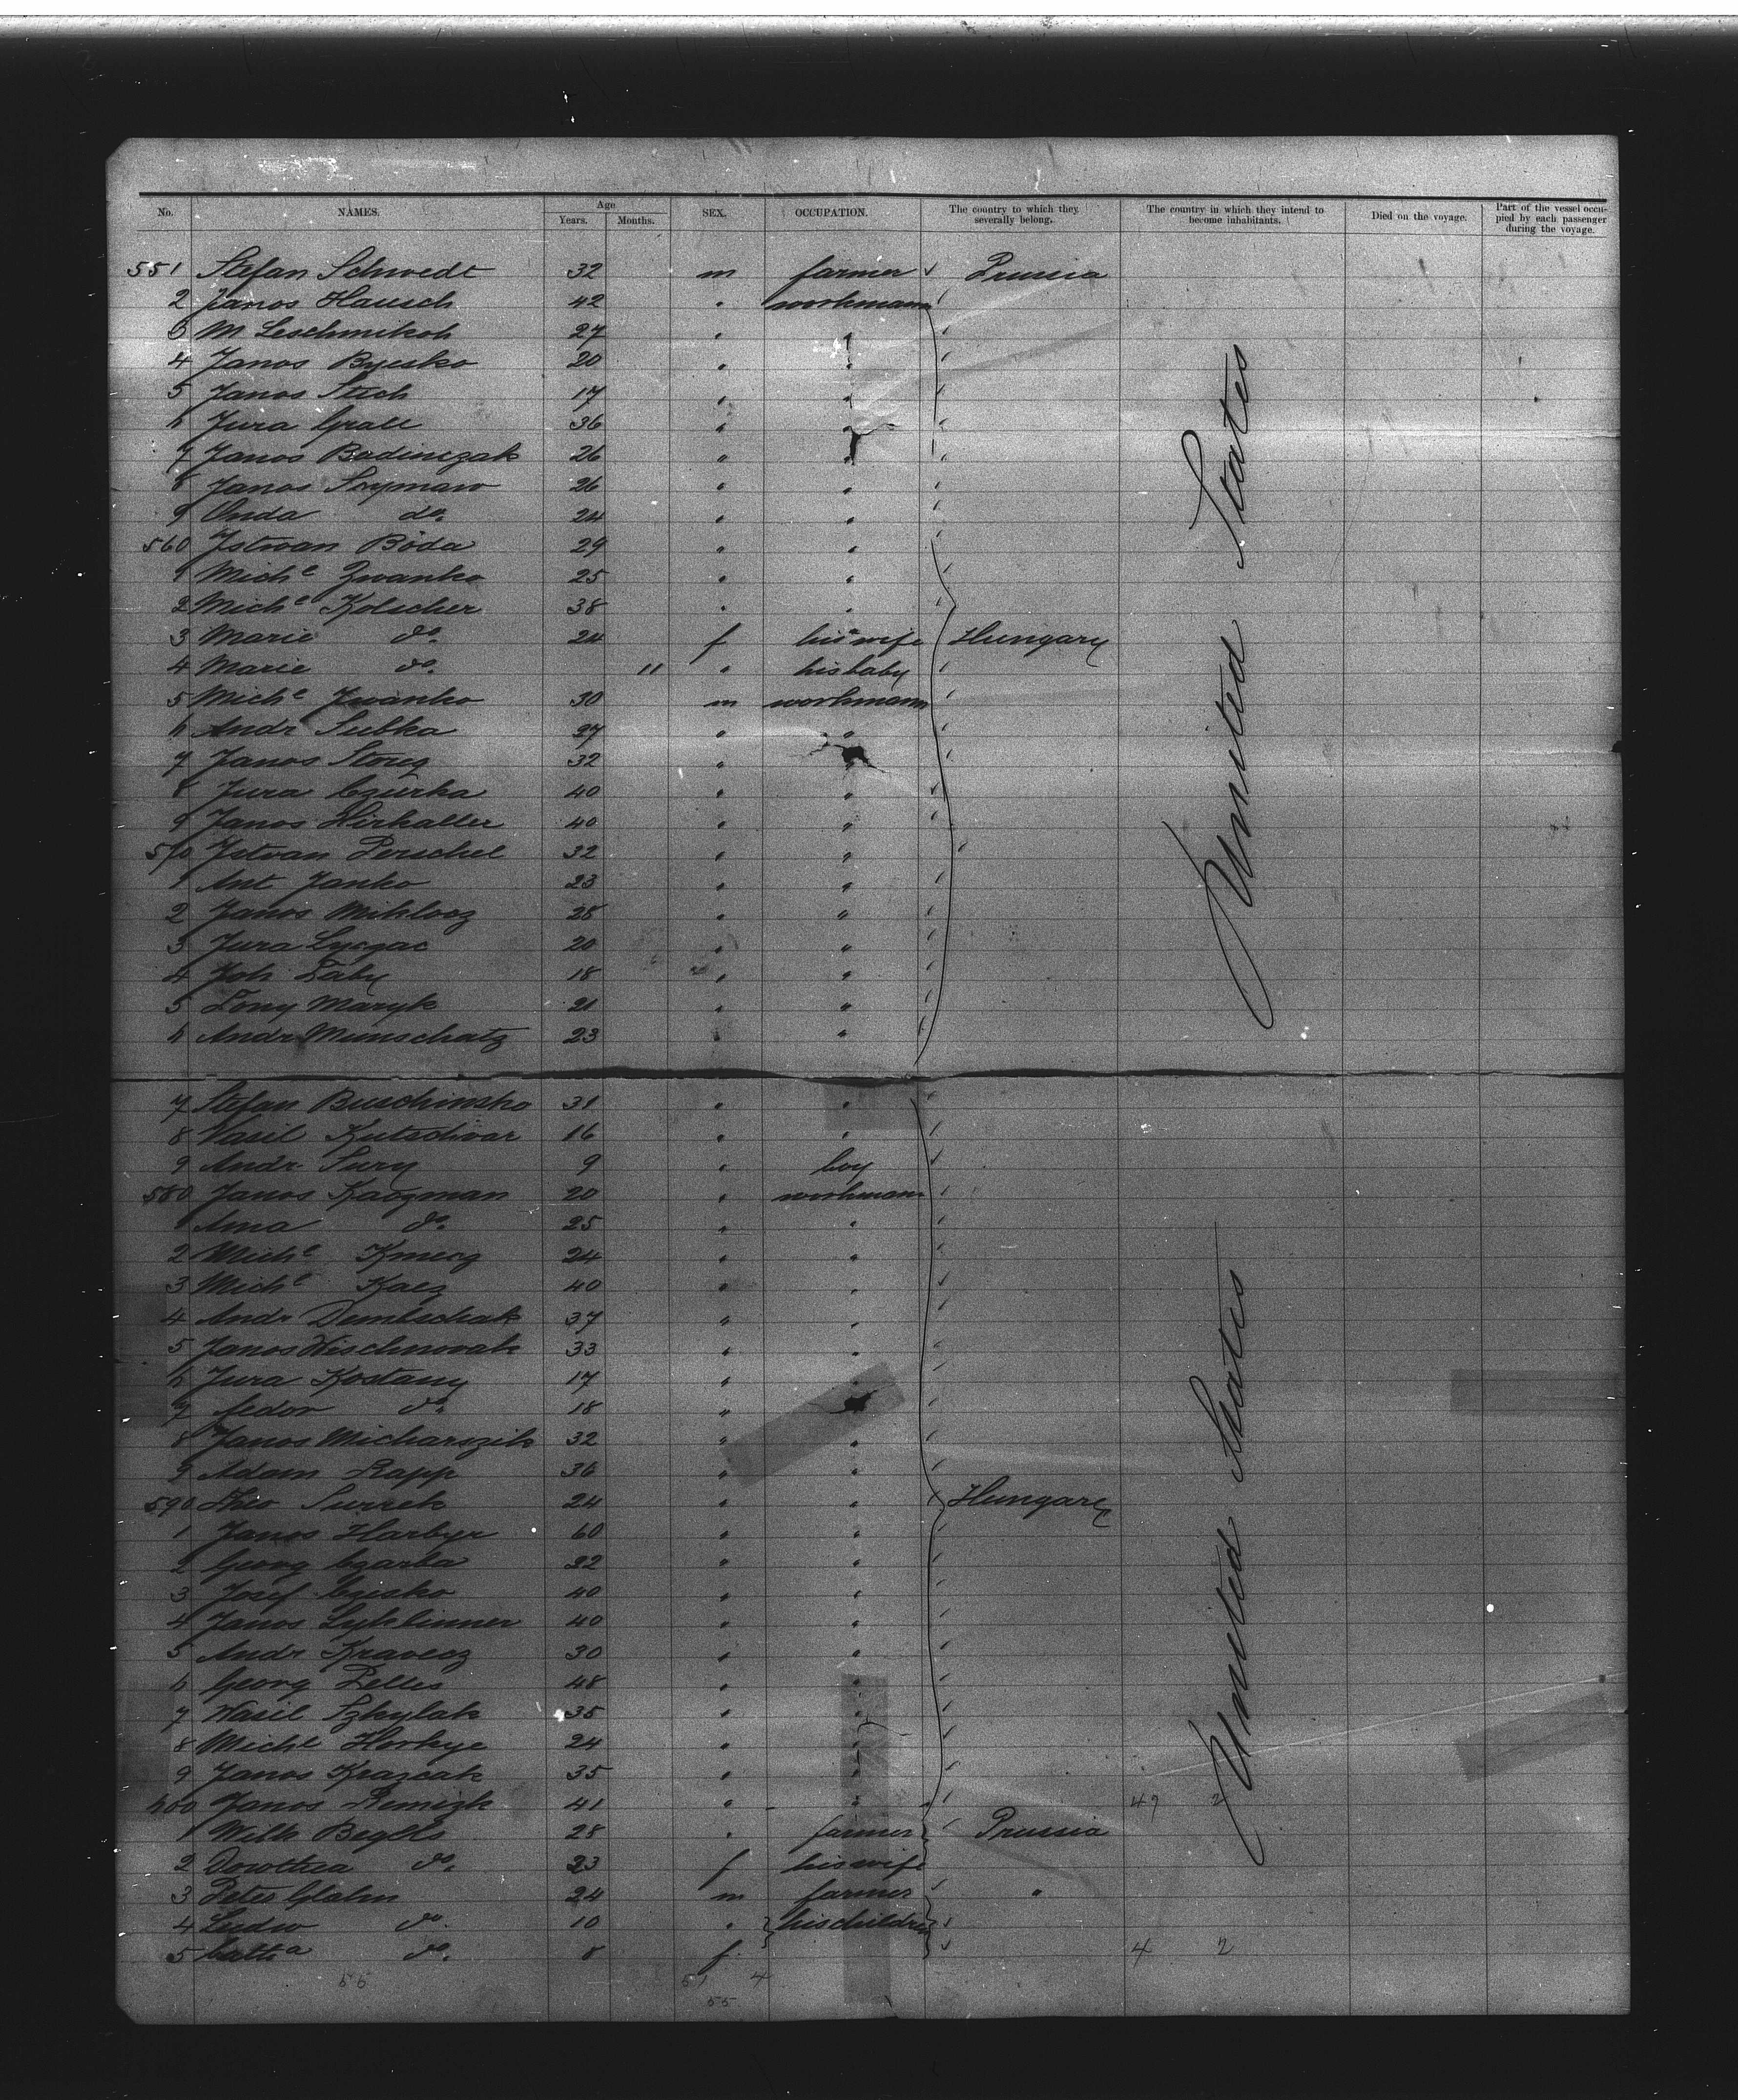 No. NAMES. Age Years. Months. SEX. OCCUPATION. The country to which they severally belong. The country in which they intend to become inhabitants. Died on the voyage. Part of the vessel occupied by each passenger during the voyage.
551 Stefan Schwedt 32 m farmer Prussia
2 Janos Hausch 42 " workmann
3 M Leschmikoh 27 " "
4 Janos Byesko 20 " "
5 Janos Stich 17 " "
6 Jura Grall 36 " "
7 Janos Badinczak 26 " "
8 Janos Szymaw 26 " "
9 Anda do. 24 " "
560 Istvan Böda 29 " "
1 Michl Zwanko 25 " "
2 Michl Kolscher 38 " "
3 Marie do. 24 f his wife Hungary
4 Marie do. 11 " his baby
5 Michl Iwanko 30 m workmann
6 Andr Subka 27 " "
7 Janos Storg 32 " "
8 Jura Czurka 40 " "
9 Janos Hirkaller 40 " "
570 Istvan Perschel 32 " "
1 Ant Janko 23 " "
2 Janos Miklocz 28 " "
3 Jura Lyczac 20 " "
4 Joh Laby 18 " "
5 Tony Maryk 21 " "
6 Andr Munschatz 23 " "
United States
7 Stefan Buschinsko 31 " "
8 Vasil Kutschvar 16 " "
9 Andr Sury 9 " boy
580 Janos Kaozman 20 " workmann
1 Anna do. 25 " "
2 Michl Kmecz 24 " "
3 Michl Kacz 40 " "
4 Andr Dembschak 37 " "
5 Janos Wischnovak 33 " "
6 Jura Kostany 17 " "
7 Fedor do. 18 " "
8 Janos Micharszik 32 " "
9 Adam Rapp 36 " "
590 Theo Surrek 24 " " Hungary
1 Janos Harbyr 60 " "
2 Georg Czarba 22 " "
3 Josef Czesko 40 " "
4 Janos Lyklinner 40 " "
5 Andr Kravecz 30 " "
6 Georg Pelles 48 " "
7 Wasil Szkylak 35 " "
8 Michl Horkye 24 " "
9 Janos Krazcak 35 " "
600 Janos Remizk 41 " " 49 2
1 Wilh Beglls 28 " farmer Prussia
2 Dorothea do. 23 f his wife
3 Peter Glahn 24 m farmer "
4 Ludw do. 10 " his children
5 Catha do. 8 f 4 2
United States
55 51 4
55